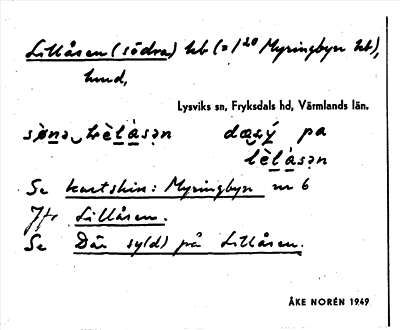 Lillåsen (södra) hb (= 1²⁰ Myringbyn hb),
hmd,
Lysviks sn, Fryksdals hd, Värmlands län.
pa
Se kartskiss: Myringbyn nr 6
Jfr Lillåsen.
Se Där sy(d) på Lillåsen.
ÅKE NORÉN 1949